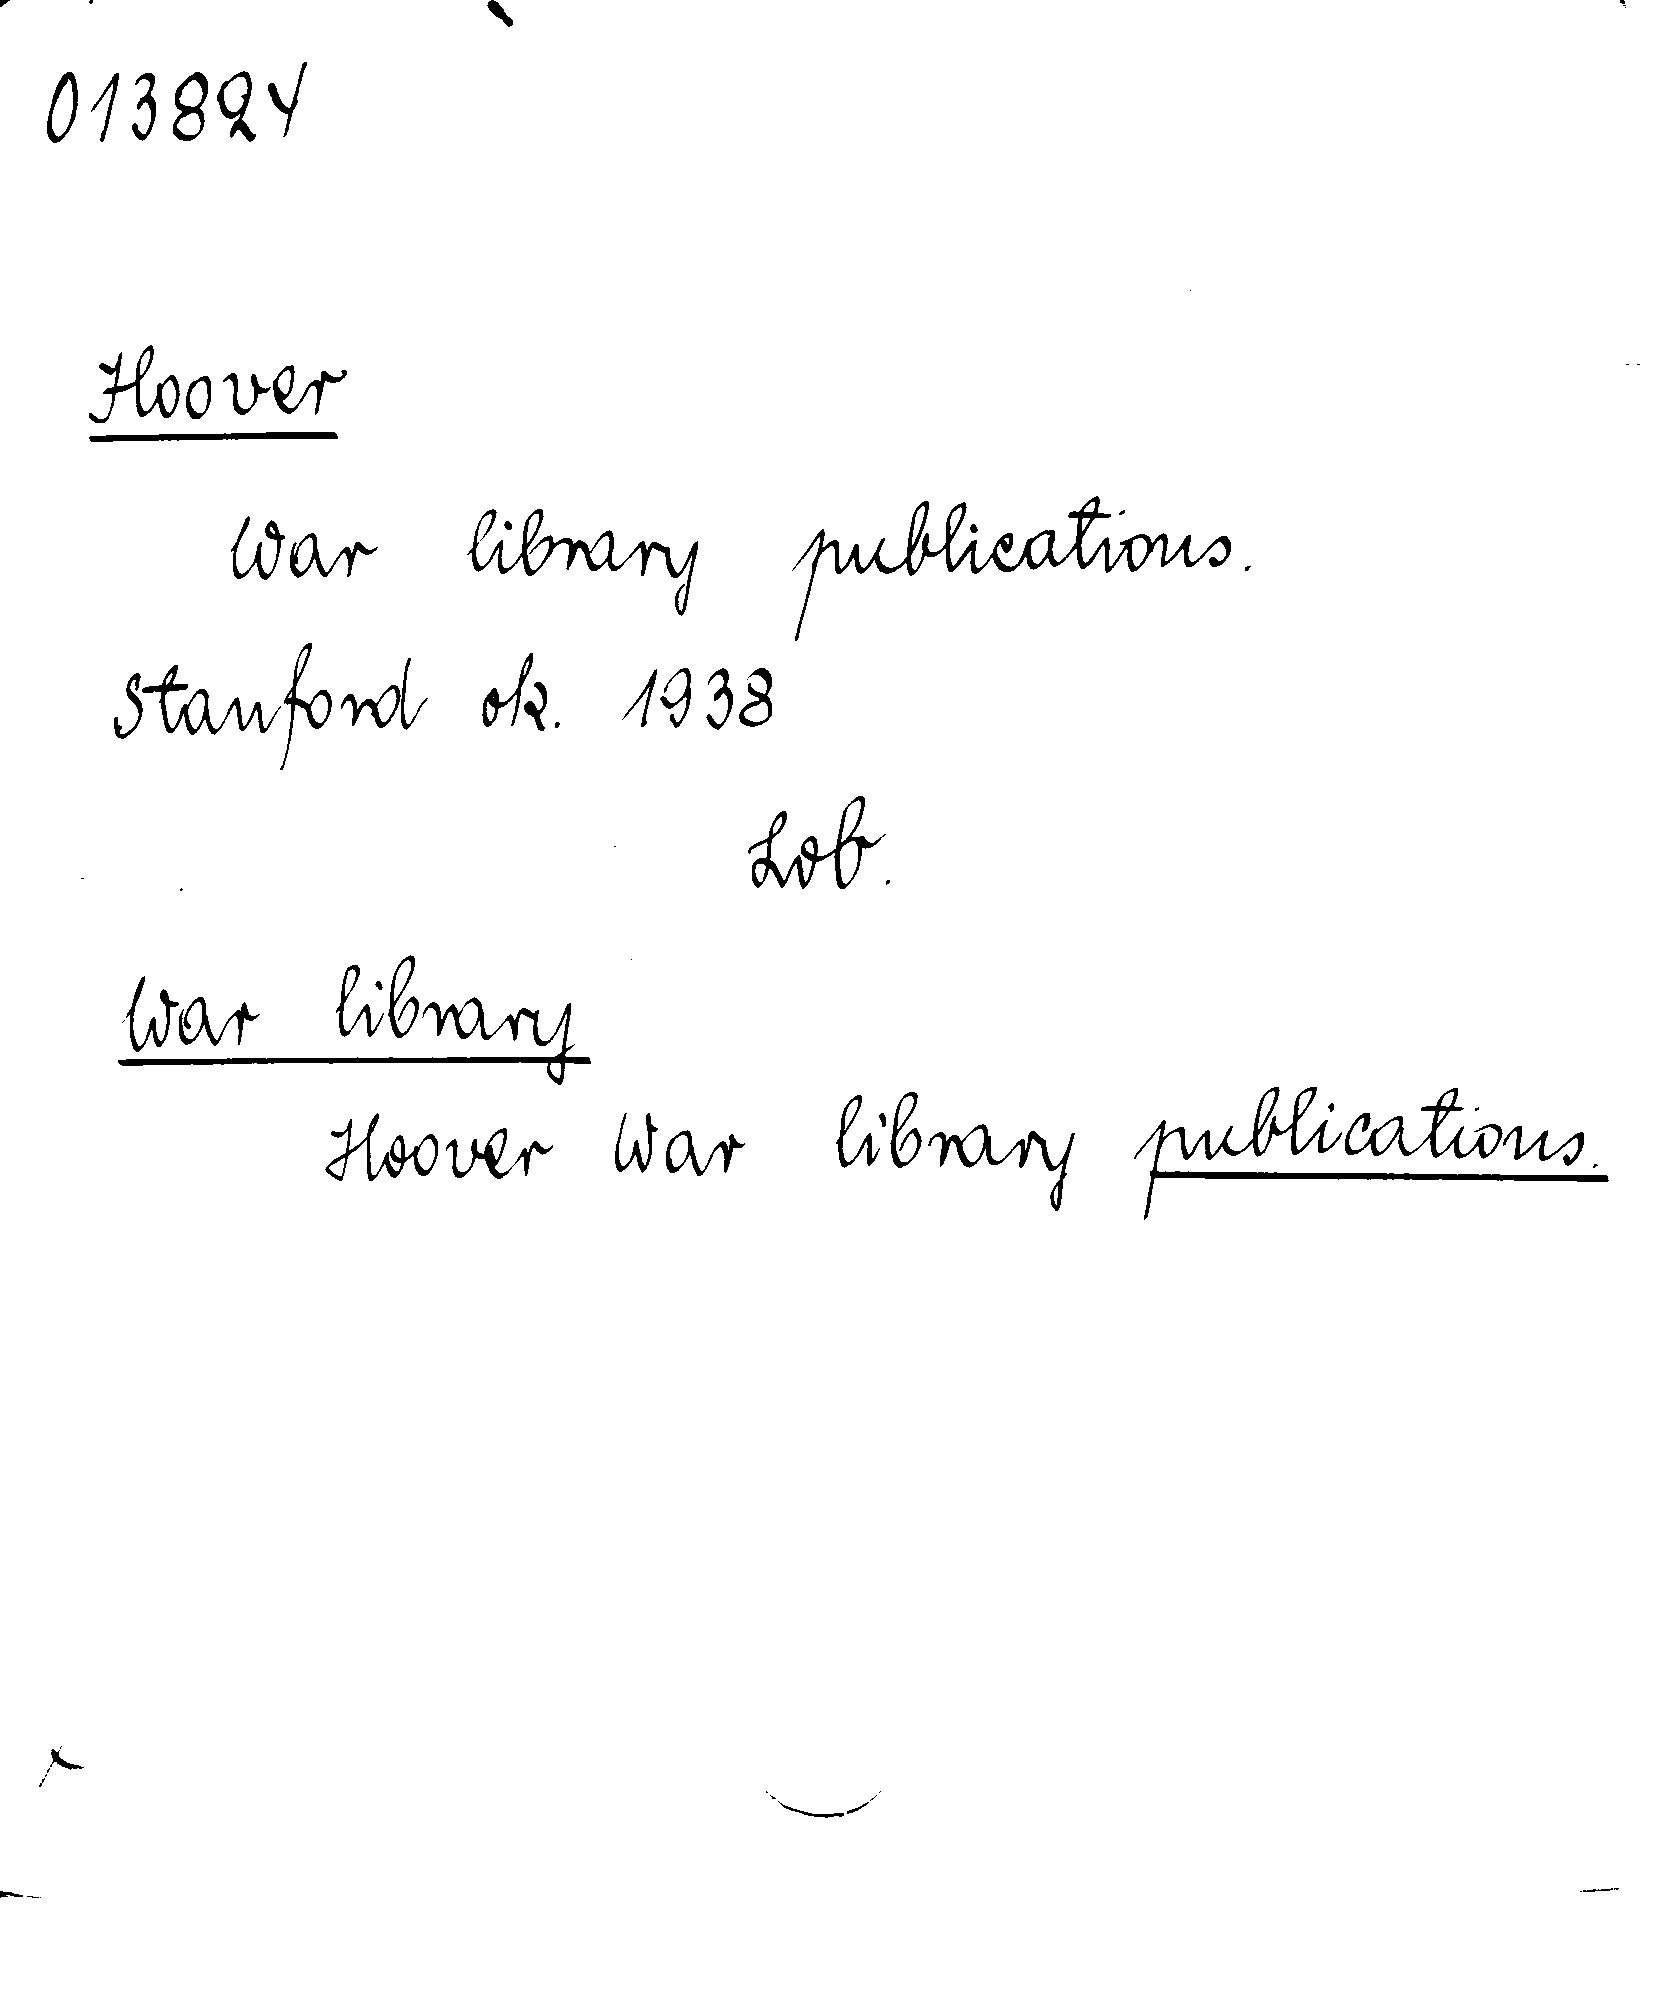 013824
Hoover
War library publications.
Stanford ok. 1938
Lob.
War library
Hoover War library publications.